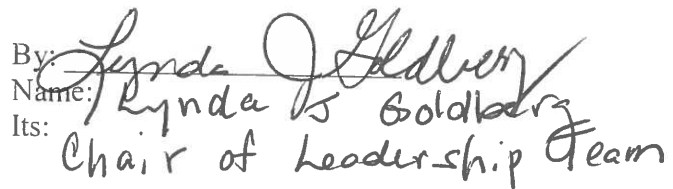 By: Lynda J Goldberg
Name: Lynda J Goldberg
Its:
Chair of Leadership Team